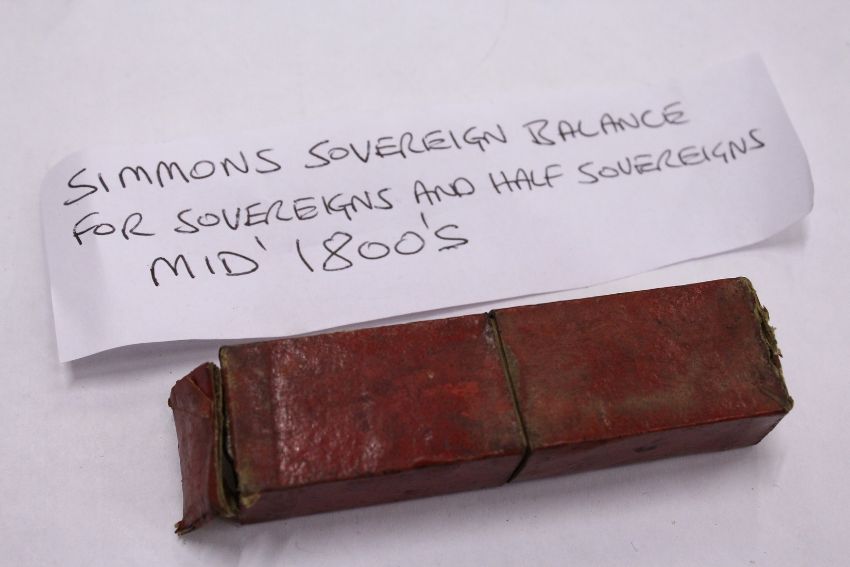 SIMMONS SOVEREIGN BALANCE
FOR SOVEREIGNS AND HALF SOVEREIGNS
MID' 1800'S